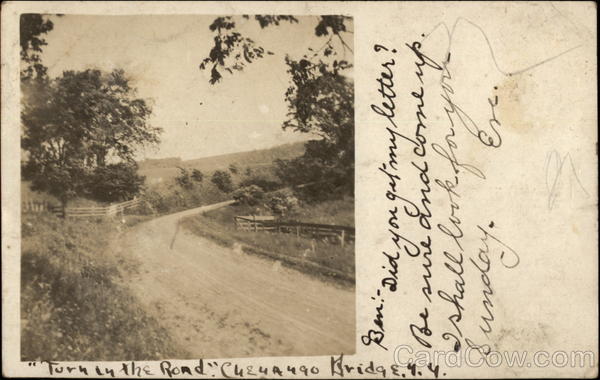 Ben:- Did you get my letter?
Be sure and come up.
I shall look for you
Sunday. Eve.
"Turn in the Road". Chenango Bridge, N.Y.
CardCow.com